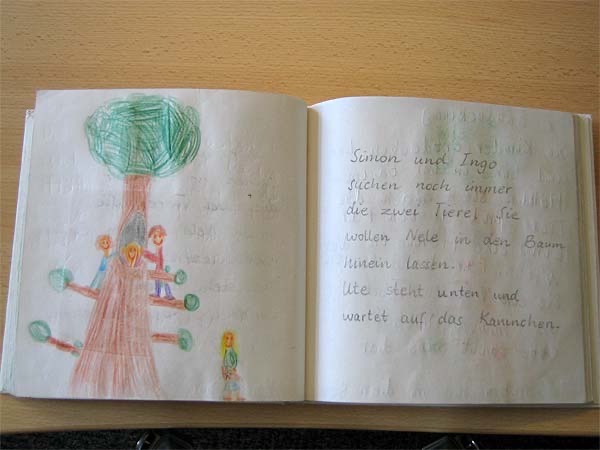 Simon und Ingo
suchen noch immer
die zwei Tiere. Sie
wollen Nele in den Baum
hinein lassen.
Ute steht unten und
wartet auf das Kaninchen.